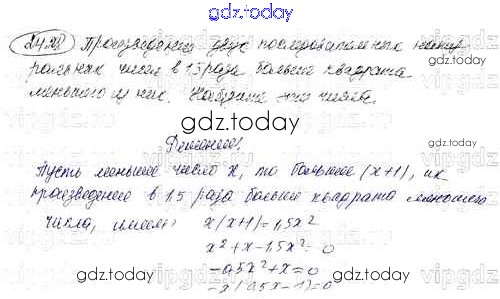 gdz.today
24.28 Произведение двух последовательных нату
ральных чисел в 1,5 раза больше квадрата
меньшего из них. Найдите эти числа.
gdz.today
Решение.
Пусть меньшее число x, то большее (x+1), их
произведение в 1,5 раза больше квадрата меньшего
числа, имеем x(x+1)=1,5x²
x²+x-1,5x²=0
-0,5x²+x=0
gdz.today
gdz.today
-x(0,5x-1)=0
gdz.today